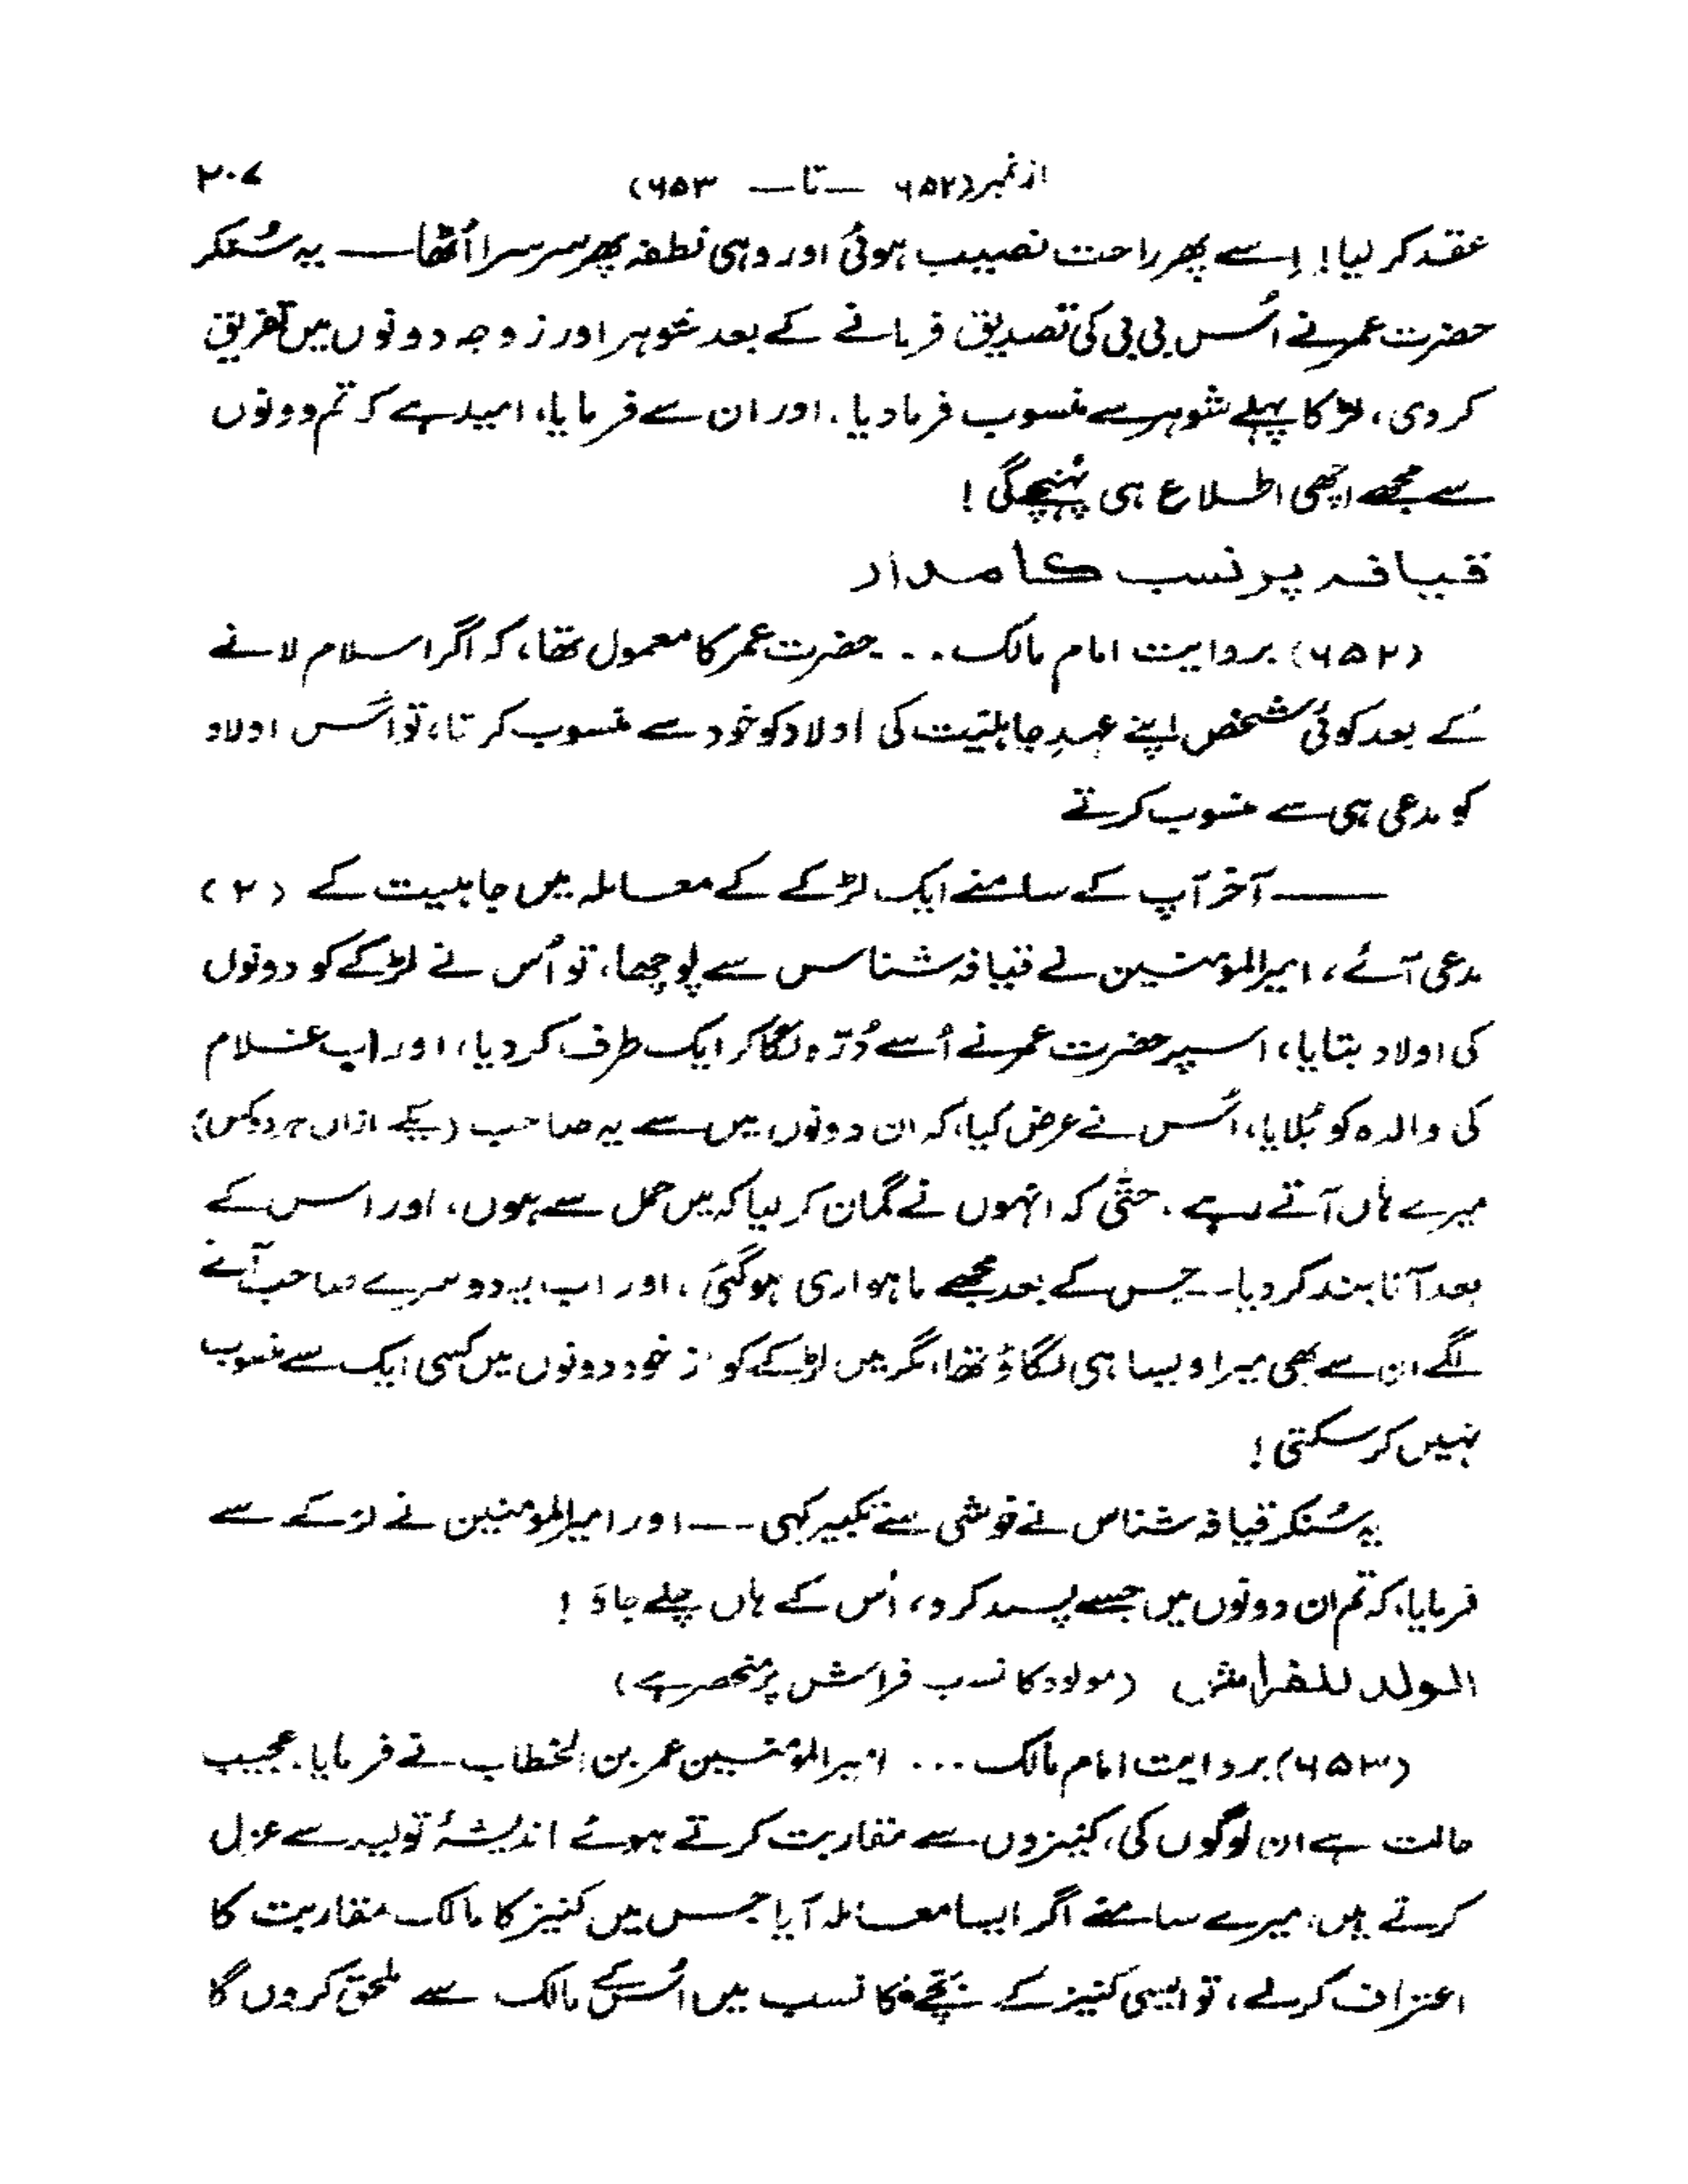 از نمبر (۶۵۲ — تا — ۶۵۳) ۲۰۷
عقد کر لیا! اِسے پھر راحت نصیب ہوئی اور وہی نطفہ پھر سرسرا اُٹھا — یہ سُنکر
حضرت عمر نے اُس بی بی کی تصدیق فرمانے کے بعد شوہر اور زوجہ دونوں میں تفریق
کر دی، لڑکا پہلے شوہر سے منسوب فرما دیا. اور ان سے فرمایا، امید ہے کہ تم دونوں
سے مجھے اچھی اطلاع ہی پُہنچے گی!
قیافہ پر نسب کا مدار
(۶۵۲) بروایت امام مالک... حضرت عمر کا معمول تھا، کہ اگر اسلام لانے
کے بعد کوئی شخص اپنے عہدِ جاہلیّت کی اولاد کو خود سے منسوب کرتا، تو اُس اولاد
کو مدعی ہی سے منسوب کرتے
—— آخر آپ کے سامنے ایک لڑکے کے معاملہ میں جاہلیت کے (۲)
مدعی آئے، امیر المؤمنین نے قیافہ شناس سے پوچھا، تو اُس نے لڑکے کو دونوں
کی اولاد بتایا، اسپر حضرت عمر نے اُسے دُرّہ لگا کر ایک طرف کر دیا، اور اب غلام
کی والدہ کو بُلایا، اُس نے عرض کیا، کہ ان دونوں میں سے یہ صاحب (یکے ازاں ہر دو کس)
میرے ہاں آتے رہے. حتّٰی کہ انہوں نے گمان کر لیا کہ میں حمل سے ہوں، اور اس کے
بعد آنا بند کر دیا — جس کے بعد مجھے ماہواری ہو گئی، اور اب یہ دوسرے صاحب آنے
لگے ان سے بھی میرا ویسا ہی لگاؤ تھا، مگر میں لڑکے کو از خود دونوں میں کسی ایک سے منسوب
نہیں کر سکتی!
یہ سُنکر قیافہ شناس نے خوشی سے تکبیر کہی — اور امیر المؤمنین نے لڑکے سے
فرمایا، کہ تم ان دونوں میں جسے پسند کرو، اُس کے ہاں چلے جاؤ!
الولد للفراش (مولود کا نسب فراش پر منحصر ہے)
(۶۵۳) بروایت امام مالک... امیر المؤمنین عمر بن الخطاب نے فرمایا. عجیب
حالت ہے ان لوگوں کی، کنیزوں سے مقاربت کرتے ہوئے اندیشۂ تولید سے عزل
کرتے ہیں، میرے سامنے اگر ایسا معاملہ آیا جس میں کنیز کا مالک مقاربت کا
اعتراف کر لے، تو ایسی کنیز کے بچّے کا نسب میں اُس کے مالک سے ملحق کروں گا